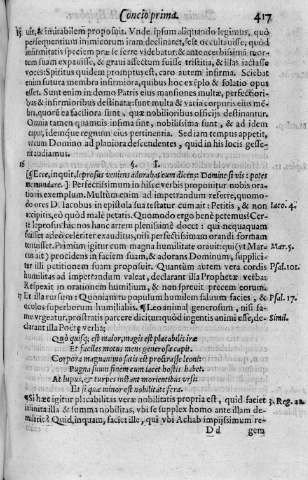 Concio prima. 417
uit, & imitabilem proposuit. Vnde ipsum aliquando legimus, quo
persequentium inimicorum iram declinaret, se occultasse, quod
infirmitatis speciem præ se ferre videtur: & ante crucem sibi mor-
tem suam expauisse, & graui affectum fuisse tristitia, & illas iactasse
voces: Spiritus quidem promptus est, caro autem infirma. Sciebat
enim futura membra infirmiora, quibus hoc exéplo & solatio opus
esset. Sunt enim in domo Patris eius mansiones multæ, perfectiori-
bus & infirmioribus destinatæ: sunt multa & varia corporis eius mé-
bra, quorū ea
Omnia tamen quantūuis infirma sint, nobilissima sunt, & ad idem
caput, idemque regnum eius pertinentia. Sed iam tempus appetit,
vt cum Domino ad planiora descendentes, quid in his locis gesse-
rit audiamus.
16 §.
Ecce, inquit, leprosus veniens adorabat eum dicens: Domine si vis: potes
me mundare. Perfectissimum in hisce verbis proponitur nobis ora-
tionis exemplum. Multùm enim ad impetrandum refert, quomo-
do ores. D. Iacobus in epistola sua testatur cum ait: Petitis, & non Iaco. 4.
accipitis, eò quòd malè petatis. Quomodo ergo benè petemus? Cer-
tè leprosus hic nos hanc artem plenissimè docet: qui nequaquam
fuisset adeò celeriter exauditus, nisi perfectissimam orandi formam
tenuisset. Primùm igitur cum magna humilitate orauit: qui (vt Mar- Mar. 5.
cus ait) procidens in faciem suam, & adorans Dominum, supplici-
ter illi petitionem suam proposuit. Quantùm autem vera cordis Psal. 101.
humilitas ad impetrandum valeat, declarant illa Prophetæ verba:
Respexit in orationem humilium, & non spreuit precem eorum.
17 Et illa rursum: Quoniam tu populum humilem saluum facies, & Psal. 17.
oculos superborum humiliabis. Leo animal generosum, nisi fa-
me vrgeatur, prostratis parcere dicitur: quod ingentis animi esse, de- Simil.
clarant illa Poetæ verba:
Quò quisque est maior, magis est placabilis iræ
Et faciles motus mens generosa capit.
Corpora magnanimo satis est prostrasse leoni:
Pugna suum finem cum iacet hostis habet.
At lupus, & turpes instant morientibus vrsi:
Et si quæ minor est nobilitate fera.
Si hæc igitur placabilitas veræ nobilitatis propria est, quid faciet 3. Reg. 21.
infinita illa & summa nobilitas, vbi se supplex homo ante illam de-
miserit? Quid, inquam, faciet ille, qui vbi Achab impijssimum re-
D d gem